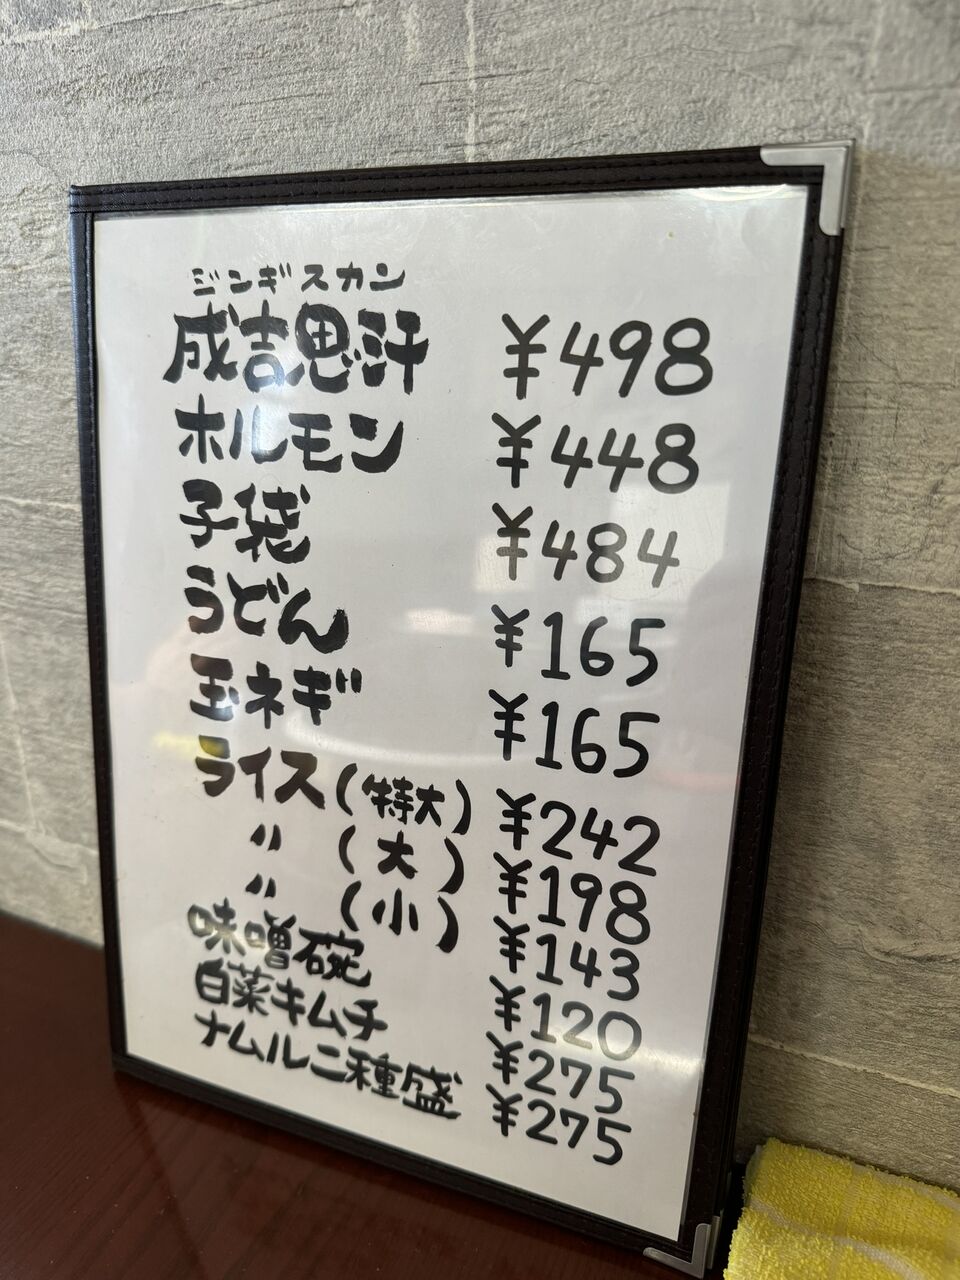 ジンギスカン
成吉思汗 ¥498
ホルモン ¥448
子袋 ¥484
うどん ¥165
玉ネギ ¥165
ライス(特大) ¥242
〃 (大) ¥198
〃 (小) ¥143
味噌碗 ¥120
白菜キムチ ¥275
ナムル二種盛 ¥275